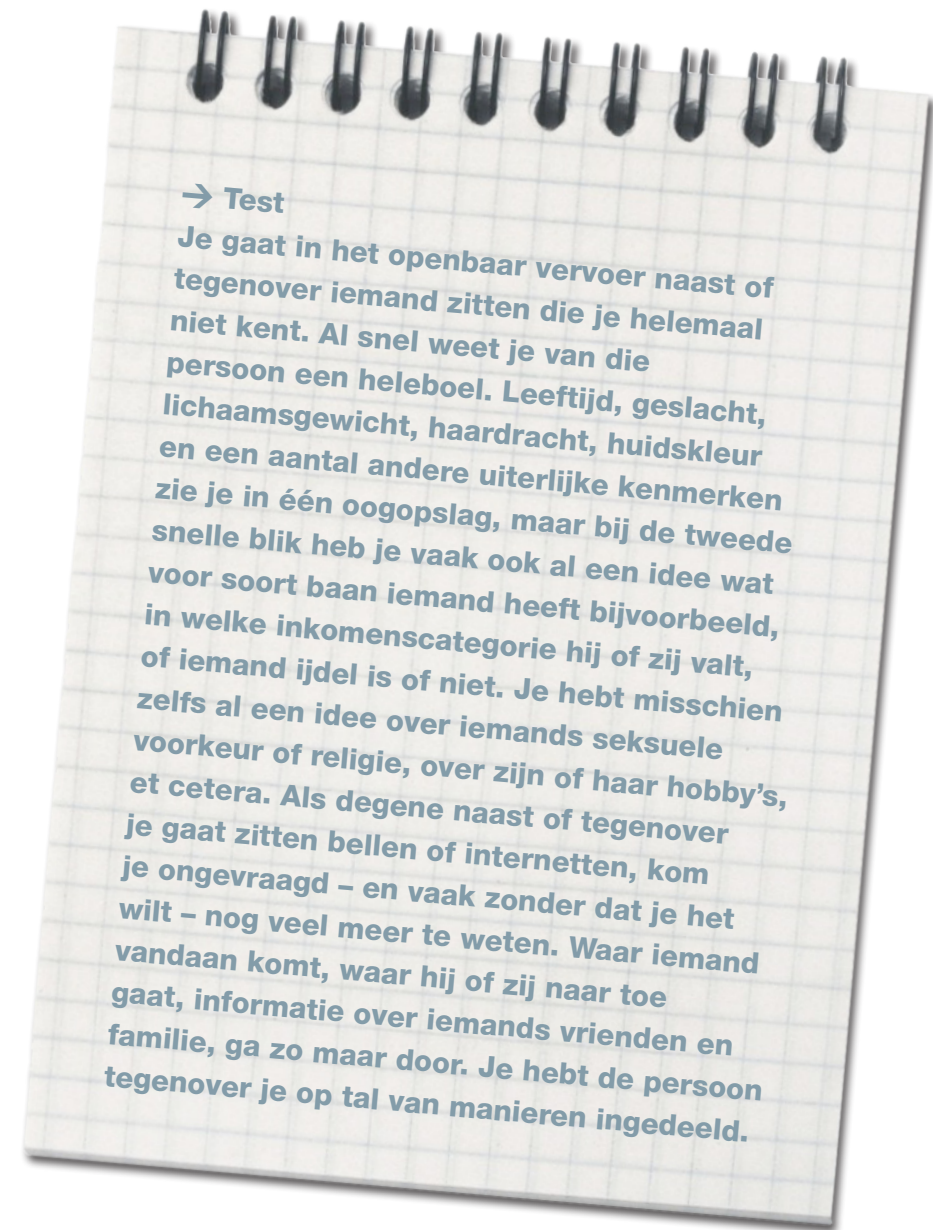 → Test
Je gaat in het openbaar vervoer naast of
tegenover iemand zitten die je helemaal
niet kent. Al snel weet je van die
persoon een heleboel. Leeftijd, geslacht,
lichaamsgewicht, haardracht, huidskleur
en een aantal andere uiterlijke kenmerken
zie je in één oogopslag, maar bij de tweede
snelle blik heb je vaak ook al een idee wat
voor soort baan iemand heeft bijvoorbeeld,
in welke inkomenscategorie hij of zij valt,
of iemand ijdel is of niet. Je hebt misschien
zelfs al een idee over iemands seksuele
voorkeur of religie, over zijn of haar hobby’s,
et cetera. Als degene naast of tegenover
je gaat zitten bellen of internetten, kom
je ongevraagd – en vaak zonder dat je het
wilt – nog veel meer te weten. Waar iemand
vandaan komt, waar hij of zij naar toe
gaat, informatie over iemands vrienden en
familie, ga zo maar door. Je hebt de persoon
tegenover je op tal van manieren ingedeeld.